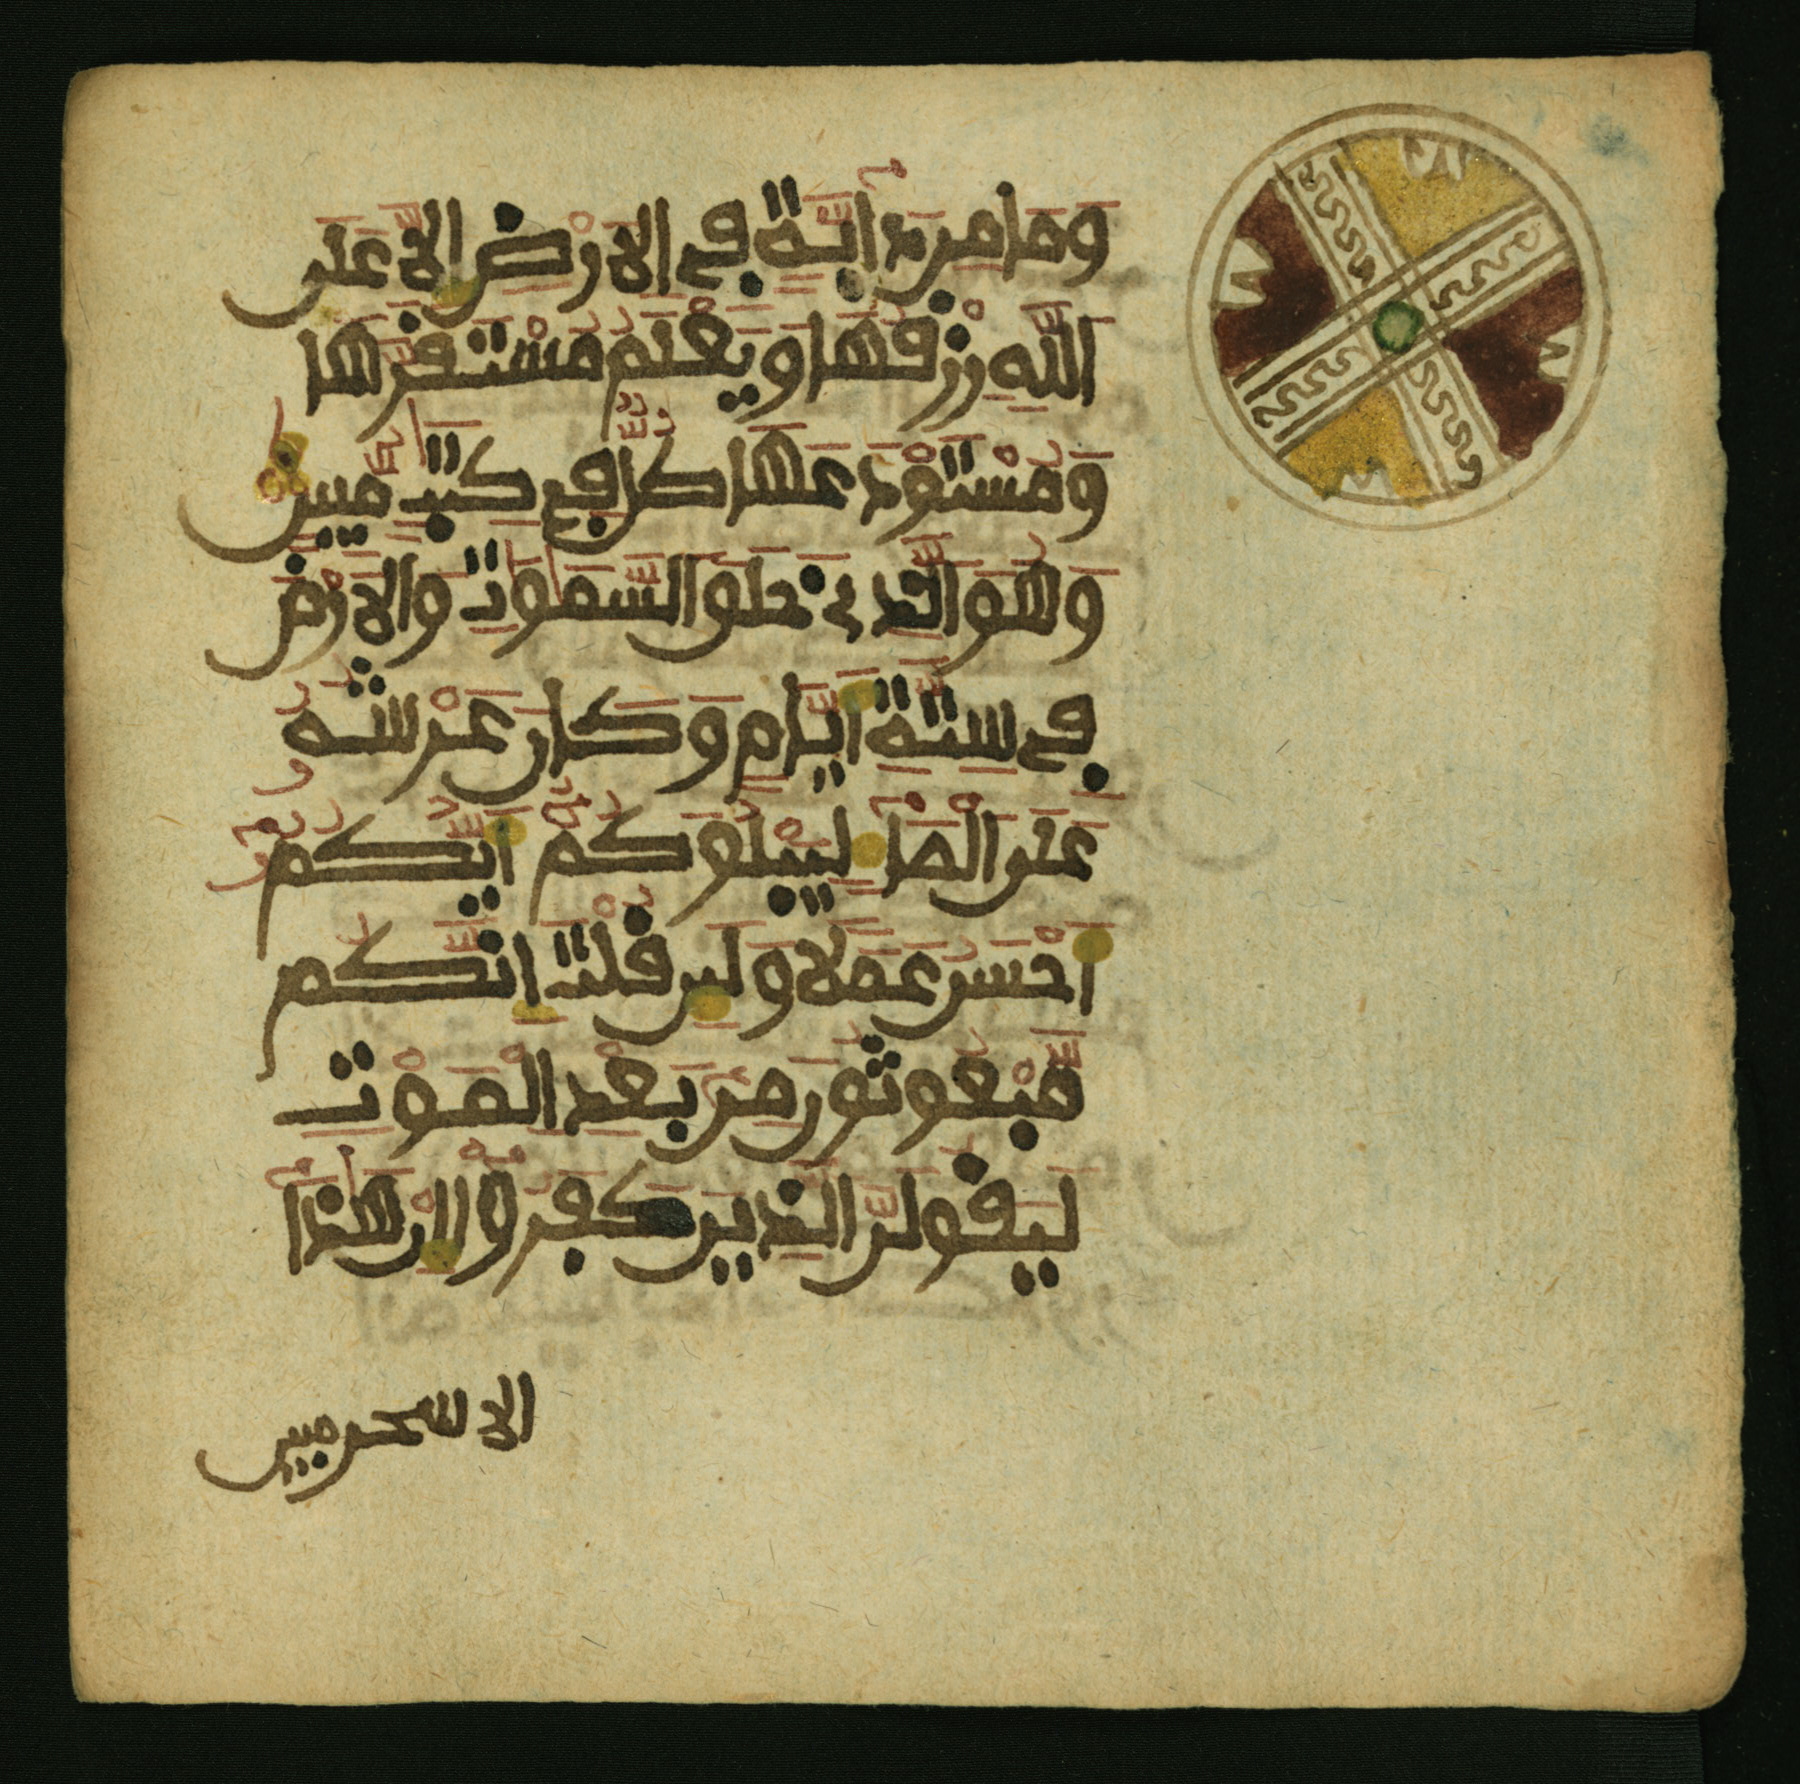 وَمَا مِن دَآبَّةٍ فِي الَارْضِ إِلَّا عَلَى
اللَّهِ رِزْقُهَا وَيَعْلَمُ مُسْتَقَرَّهَا
وَمُسْتَوْدَعَهَا كُلٌّ فِي كِتَٰبٍ مُّبِينٍ
وَهُوَ الَّذِي خَلَقَ السَّمَٰوَٰتِ وَالَارْضَ
فِي سِتَّةِ أَيَّامٍ وَكَانَ عَرْشُهُ
عَلَى الْمَآ لِيَبْلُوَكُمُۥٓ أَيُّكُمُۥٓ
أَحْسَنُ عَمَلًا وَلَئِن قُلْتَ إِنَّكُم
مَّبْعُوثُونَ مِن بَعْدِ الْمَوْتِ
لَيَقُولَنَّ الَّذِينَ كَفَرُوٓا إِنْ هَٰذَآ
الا سحر مبين